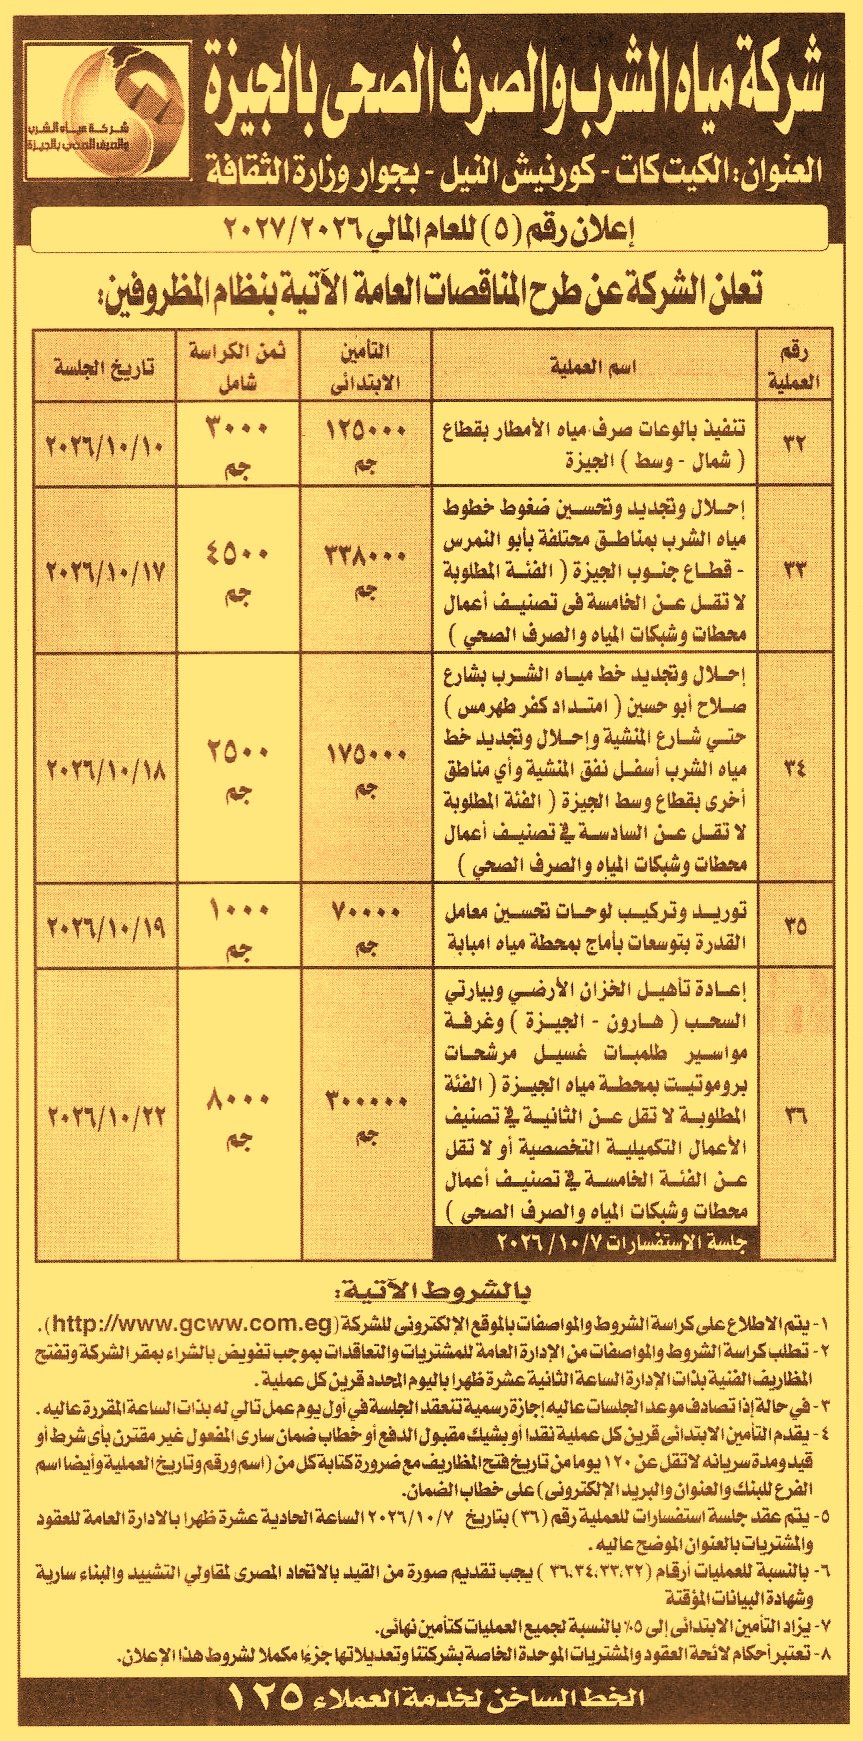 شركة مياه الشرب والصرف الصحى بالجيزة
شركة مياه الشرب
والصرف الصحي بالجيزة
العنوان: الكيت كات - كورنيش النيل - بجوار وزارة الثقافة
إعلان رقم (٥) للعام المالي ٢٠٢٧/٢٠٢٦
تعلن الشركة عن طرح المناقصات العامة الآتية بنظام المظروفين:
رقم العملية
اسم العملية
التأمين الابتدائى
ثمن الكراسة شامل
تاريخ الجلسة
٣٢
تنفيذ بالوعات صرف مياه الأمطار بقطاع
( شمال - وسط ) الجيزة
١٢٥٠٠٠ جم
٣٠٠٠ جم
٢٠٢٦/١٠/١٠
٣٣
إحلال وتجديد وتحسين ضغوط خطوط
مياه الشرب بمناطق مختلفة بأبو النمرس
- قطاع جنوب الجيزة ( الفئة المطلوبة
لا تقل عن الخامسة فى تصنيف أعمال
محطات وشبكات المياه والصرف الصحي )
٣٣٨٠٠٠ جم
٤٥٠٠ جم
٢٠٢٦/١٠/١٧
٣٤
إحلال وتجديد خط مياه الشرب بشارع
صلاح أبو حسين ( امتداد كفر طهرمس )
حتي شارع المنشية وإحلال وتجديد خط
مياه الشرب أسفل نفق المنشية وأي مناطق
أخرى بقطاع وسط الجيزة ( الفئة المطلوبة
لا تقل عن السادسة في تصنيف أعمال
محطات وشبكات المياه والصرف الصحي )
١٧٥٠٠٠ جم
٢٥٠٠ جم
٢٠٢٦/١٠/١٨
٣٥
توريد وتركيب لوحات تحسين معامل
القدرة بتوسعات بأماج بمحطة مياه امبابة
٧٠٠٠٠ جم
١٠٠٠ جم
٢٠٢٦/١٠/١٩
٣٦
إعادة تأهيل الخزان الأرضي وبيارتي
السحب ( هارون - الجيزة ) وغرفة
مواسير طلمبات غسيل مرشحات
بروموتيت بمحطة مياه الجيزة ( الفئة
المطلوبة لا تقل عن الثانية في تصنيف
الأعمال التكميلية التخصصية أو لا تقل
عن الفئة الخامسة في تصنيف أعمال
محطات وشبكات المياه والصرف الصحى )
جلسة الاستفسارات ٢٠٢٦/١٠/٧
٣٠٠٠٠٠ جم
٨٠٠٠ جم
٢٠٢٦/١٠/٢٢
بالشروط الآتية:
١- يتم الاطلاع على كراسة الشروط والمواصفات بالموقع الإلكترونى للشركة (http://www.gcww.com.eg).
٢- تطلب كراسة الشروط والمواصفات من الإدارة العامة للمشتريات والتعاقدات بموجب تفويض بالشراء بمقر الشركة وتفتح
المظاريف الفنية بذات الإدارة الساعة الثانية عشرة ظهرا باليوم المحدد قرين كل عملية.
٣- في حالة إذا تصادف موعد الجلسات عاليه إجازة رسمية تنعقد الجلسة في أول يوم عمل تالي له بذات الساعة المقررة عاليه.
٤- يقدم التأمين الابتدائى قرين كل عملية نقدا أو بشيك مقبول الدفع أو خطاب ضمان سارى المفعول غير مقترن بأى شرط أو
قيد ومدة سريانه لا تقل عن ١٢٠ يوما من تاريخ فتح المظاريف مع ضرورة كتابة كل من (اسم ورقم وتاريخ العملية وأيضا اسم
الفرع للبنك والعنوان والبريد الإلكترونى) على خطاب الضمان.
٥- يتم عقد جلسة استفسارات للعملية رقم (٣٦) بتاريخ ٢٠٢٦/١٠/٧ الساعة الحادية عشرة ظهرا بالادارة العامة للعقود
والمشتريات بالعنوان الموضح عاليه.
٦- بالنسبة للعمليات أرقام (٣٦،٣٤،٣٣،٣٢) يجب تقديم صورة من القيد بالاتحاد المصرى لمقاولي التشييد والبناء سارية
وشهادة البيانات المؤقتة
٧- يزاد التأمين الابتدائى إلى ٥٪ بالنسبة لجميع العمليات كتأمين نهائى.
٨- تعتبر أحكام لائحة العقود والمشتريات الموحدة الخاصة بشركتنا وتعديلاتها جزءا مكملا لشروط هذا الإعلان.
الخط الساخن لخدمة العملاء ١٢٥